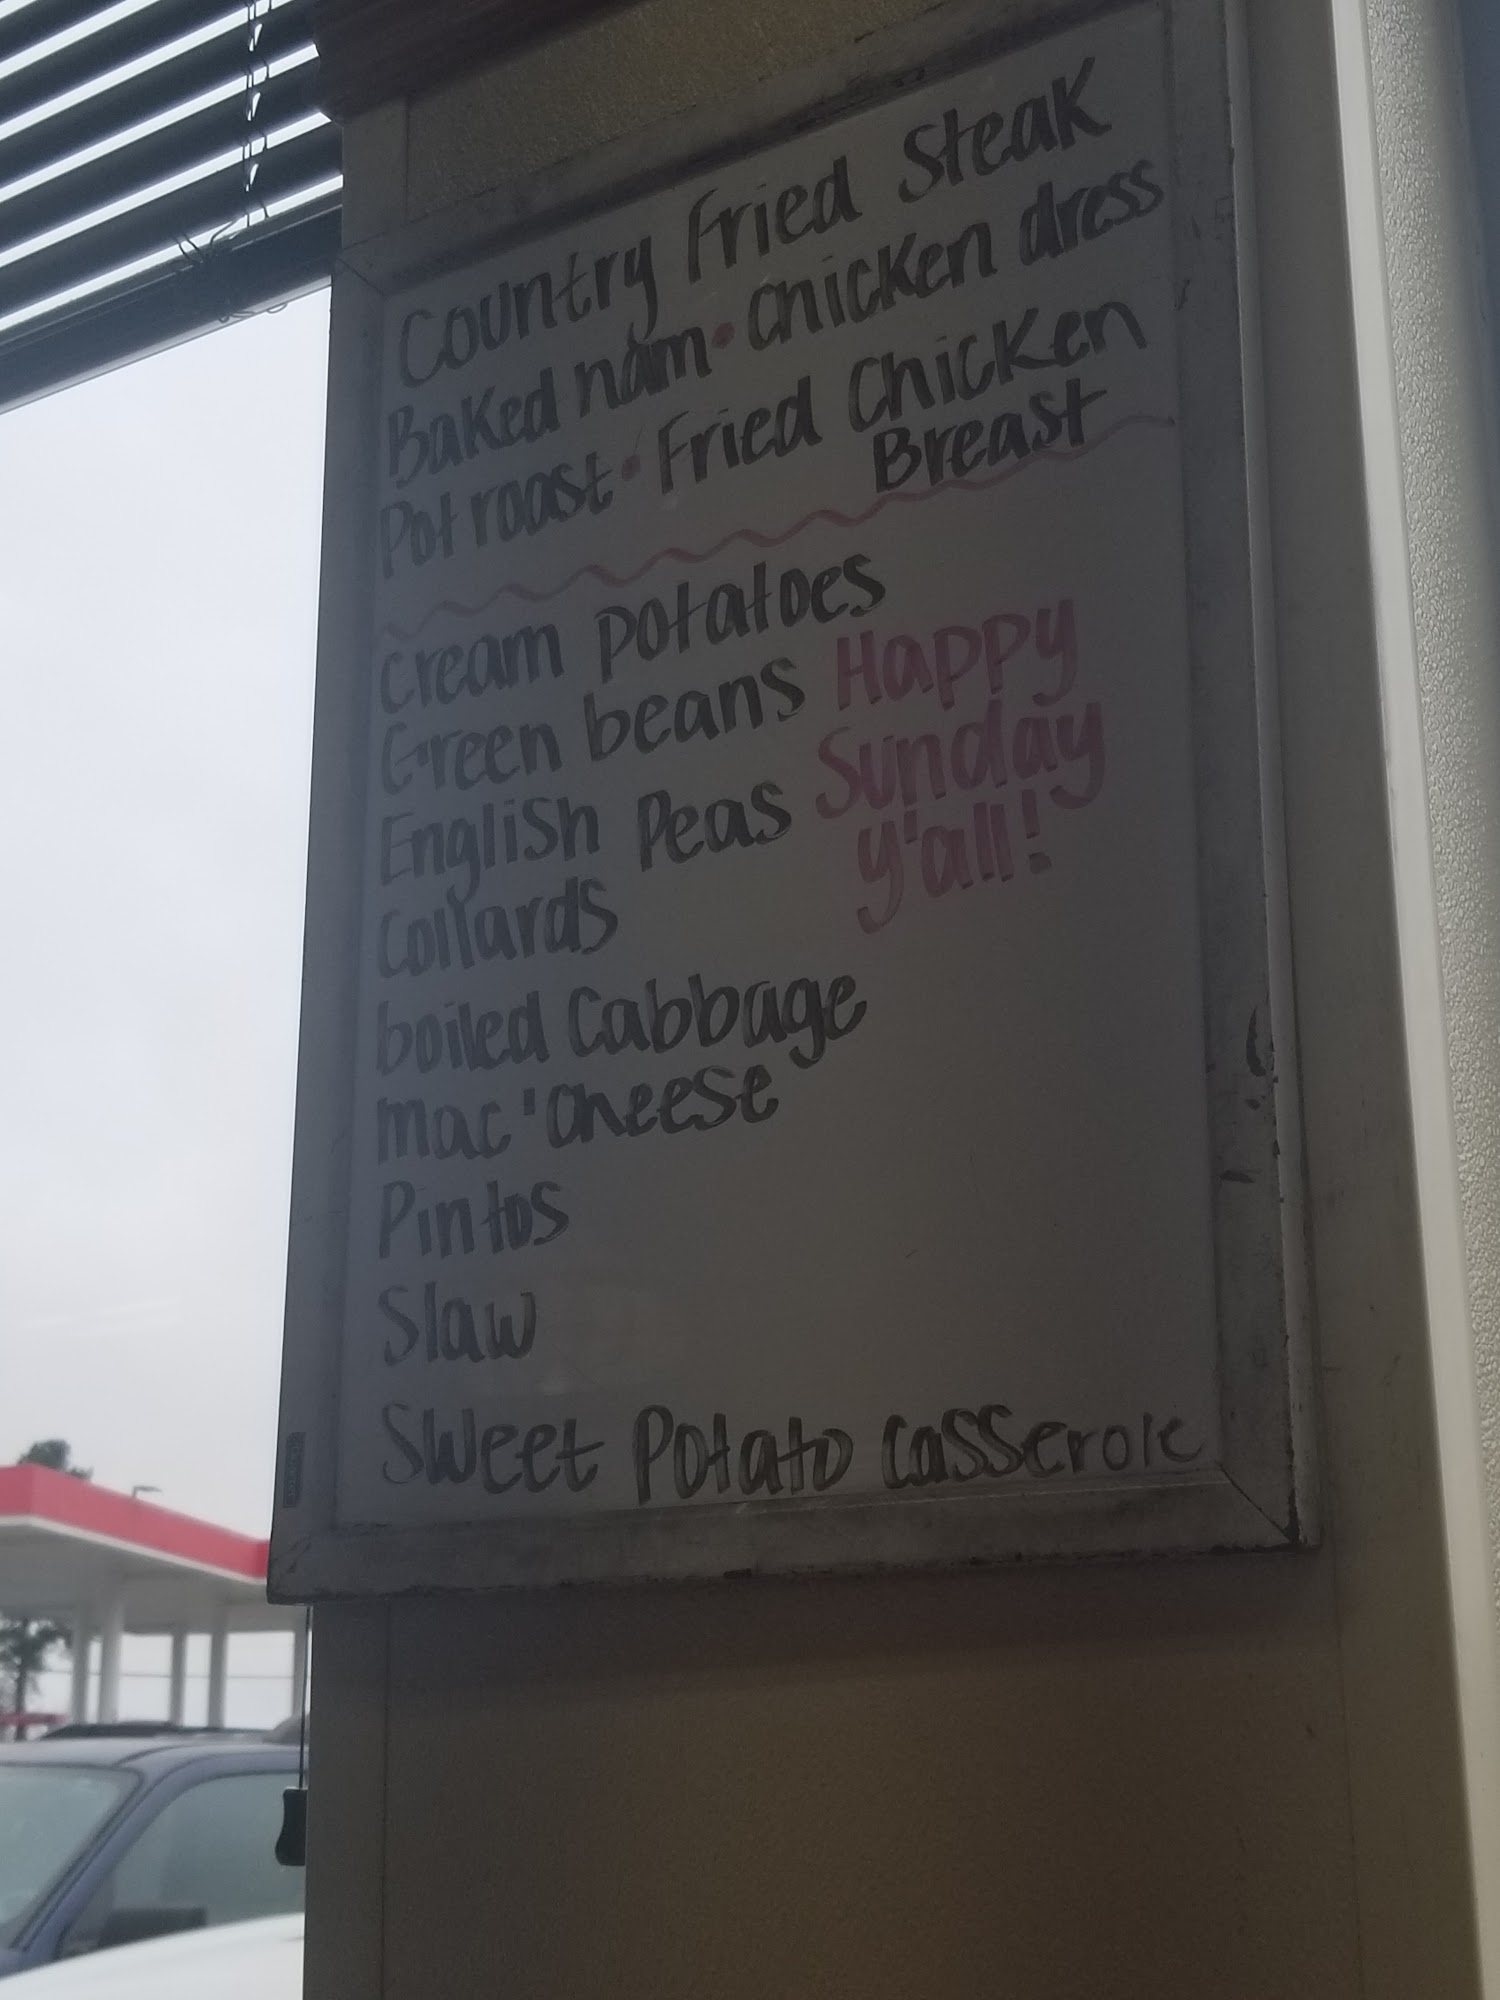 Country Fried Steak
Baked ham • Chicken dress
Pot roast • Fried Chicken
Breast
Cream potatoes
Green beans
English Peas
Collards
boiled Cabbage
mac 'cheese
Pintos
Slaw
Sweet Potato Casserole
Happy
Sunday
y'all!